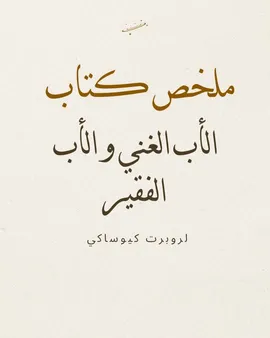 ملخص كتاب
الأب الغني و الأب
الفقير
لروبرت كيوساكي